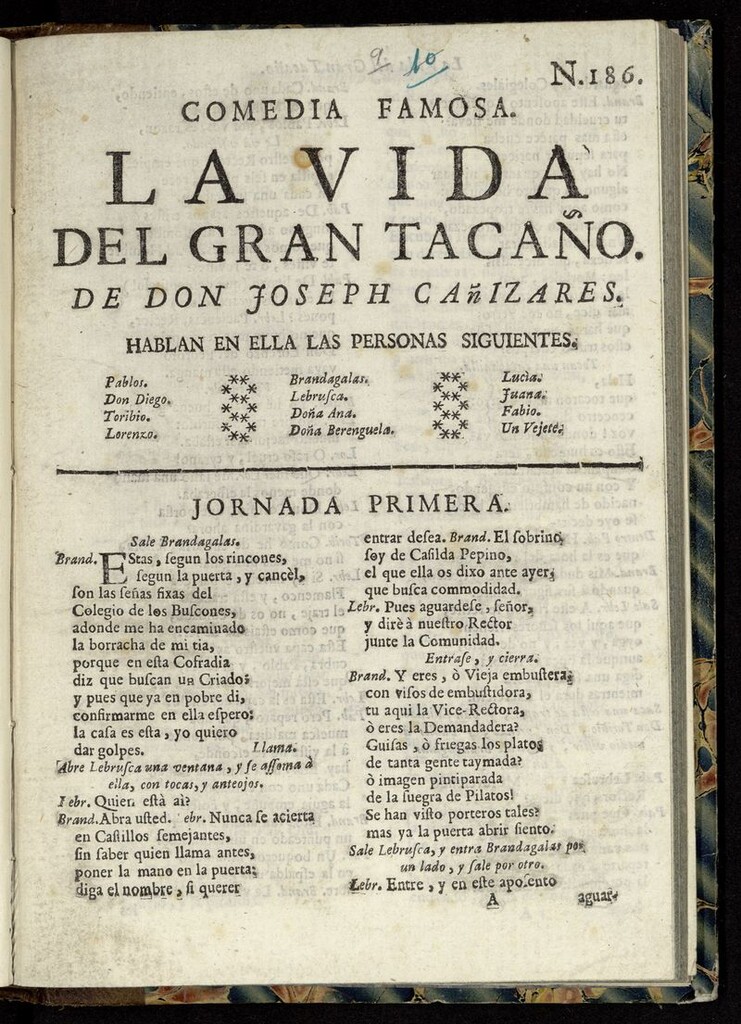 9 10
N.186.
COMEDIA FAMOSA.
LA VIDA
DEL GRAN TACAÑO.
DE DON JOSEPH CAñIZARES.
HABLAN EN ELLA LAS PERSONAS SIGUIENTES.
Pablos.
Don Diego.
Toribio.
Lorenzo.
Brandagalas.
Lebruſca.
Doña Ana.
Doña Berenguela.
Lucìa.
Juana.
Fabio.
Un Vejete.
JORNADA PRIMERA.
Sale Brandagalas.
Brand. EStas, ſegun los rincones,
ſegun la puerta, y cancèl,
ſon las ſeñas fixas del
Colegio de los Buſcones,
adonde me ha encaminado
la borracha de mi tia,
porque en eſta Cofradia
diz que buſcan un Criado:
y pues que ya en pobre di,
confirmarme en ella eſpero:
la caſa es eſta, yo quiero
dar golpes. Llama.
Abre Lebruſca una ventana, y ſe aſſoma à
ella, con tocas, y anteojos.
Lebr. Quien eſtà aì?
Brand. Abra uſted. ebr. Nunca ſe acierta
en Caſtillos ſemejantes,
ſin ſaber quien llama antes,
poner la mano en la puerta:
diga el nombre, ſi querer
entrar deſea. Brand. El ſobrino
ſoy de Caſilda Pepino,
el que ella os dixo ante ayer,
que buſca commodidad.
Lebr. Pues aguardeſe, ſeñor,
y dirè à nueſtro Rector
junte la Comunidad.
Entraſe, y cierra.
Brand. Y eres, ò Vieja embuſtera,
con viſos de embuſtidora,
tu aqui la Vice-Rectora,
ò eres la Demandadera?
Guiſas, ò friegas los platos
de tanta gente taymada?
ò imagen pintiparada
de la ſuegra de Pilatos!
Se han viſto porteros tales?
mas ya la puerta abrir ſiento.
Sale Lebruſca, y entra Brandagalas por
un lado, y ſale por otro.
Lebr. Entre, y en eſte apoſento
A aguar-